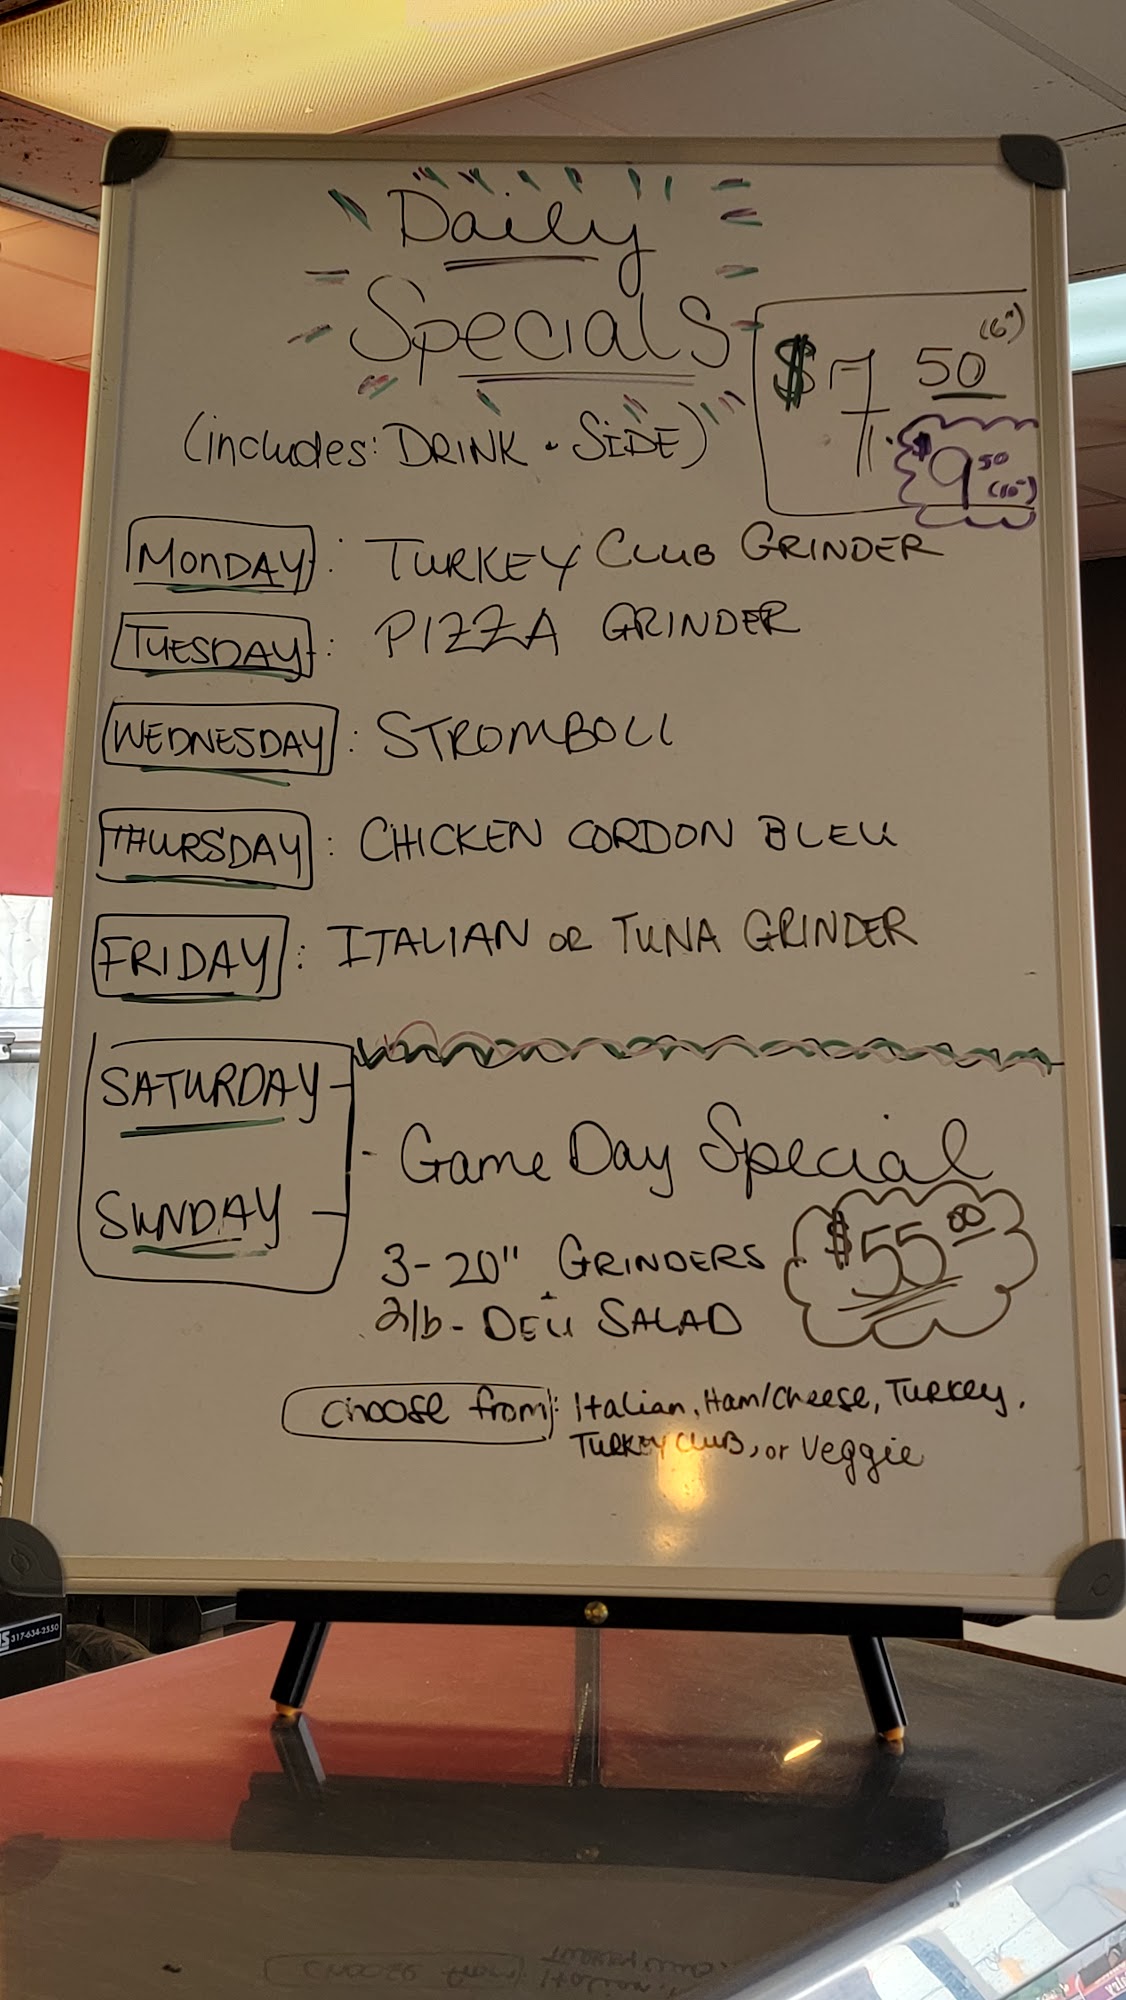 Daily
Specials
$7.50 (6")
$9.50 (10")
(includes: DRINK + SIDE)
MONDAY: TURKEY CLUB GRINDER
TUESDAY: PIZZA GRINDER
WEDNESDAY: STROMBOLI
THURSDAY: CHICKEN CORDON BLEU
FRIDAY: ITALIAN OR TUNA GRINDER
SATURDAY
SUNDAY
- Game Day Special
$55.00
3-20" GRINDERS
+
2lb- DELI SALAD
choose from: Italian, Ham/Cheese, Turkey,
TURKEY CLUB, or Veggie
317-634-2550